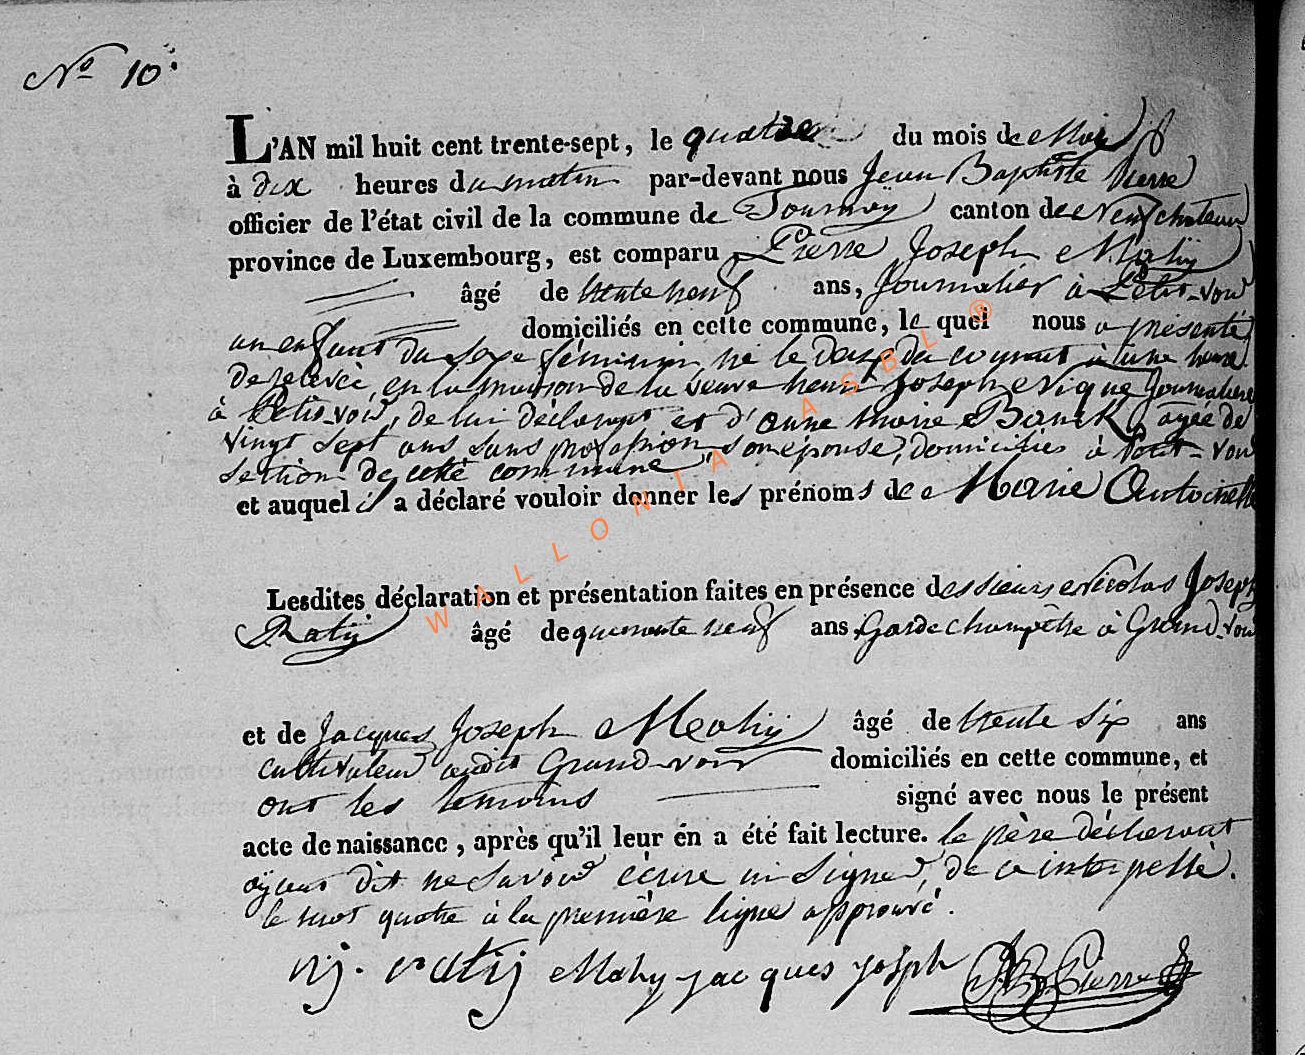 No 10.
L'AN mil huit cent trente-sept, le quatre du mois de Mai
à dix heures du matin par-devant nous Jean Baptiste Pierre
officier de l'état civil de la commune de Tournay canton de Neufchateau
province de Luxembourg, est comparu Pierre Joseph Mahy
âgé de trente neuf ans, Journalier à Petit-voir
domiciliés en cette commune, le quel nous a présenté
un enfant du sexe féminin né le deux du courant à une heure
de relevée, en la maison de la veuve henri Joseph Nique Journaliere
à Petit-voir, de lui déclarant et d'anne Marie Bouck, agée de
vingt sept ans sans profession, son épouse, domiciliés à Petit-voir
section de cette commune
et auquel il a déclaré vouloir donner les prénoms de Marie Antoinette
Lesdites déclaration et présentation faites en présence des sieurs Nicolas Joseph
Ratij âgé de quarante neuf ans, Garde champêtre à Grand-voir
et de Jacques Joseph Mahij âgé de trente six ans
cultivateur audit Grand-voir domiciliés en cette commune, et
ont les temoins signé avec nous le présent
acte de naissance, après qu'il leur en a été fait lecture. le père déclarant
aÿant dit ne savoir écrire ni signer, de ce interpellé.
le mot quatre à la première ligne approuvé.
nj. ratij Mahy jacques joseph JB Pierre
WALLONIA ASBL ®